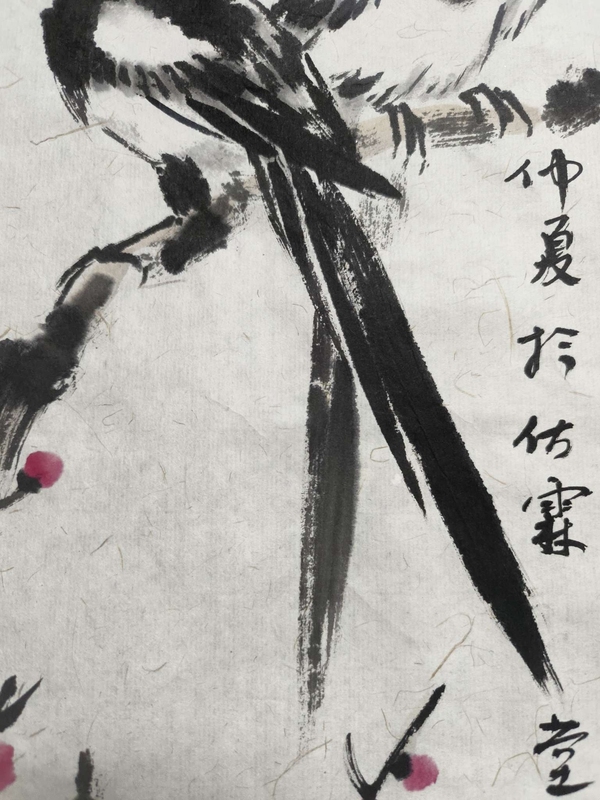 仲夏於估霖堂